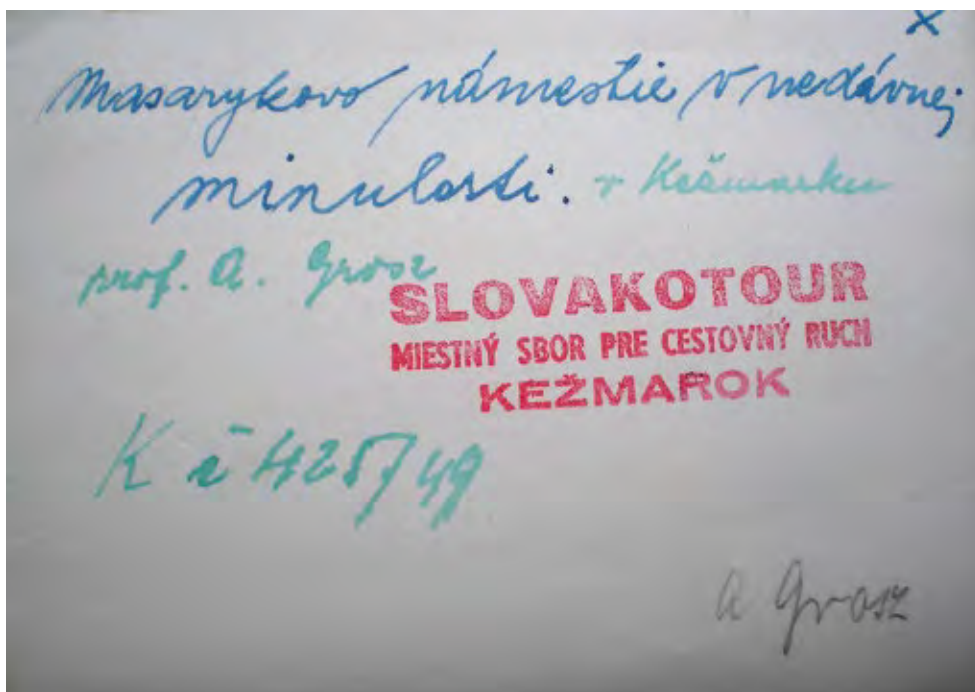 x
Masarykovo námestie v nedávnej
minulosti. v Kežmarku
prof. A. Grosz
SLOVAKOTOUR
MIESTNÝ SBOR PRE CESTOVNÝ RUCH
KEŽMAROK
K č 428/49
A Grosz